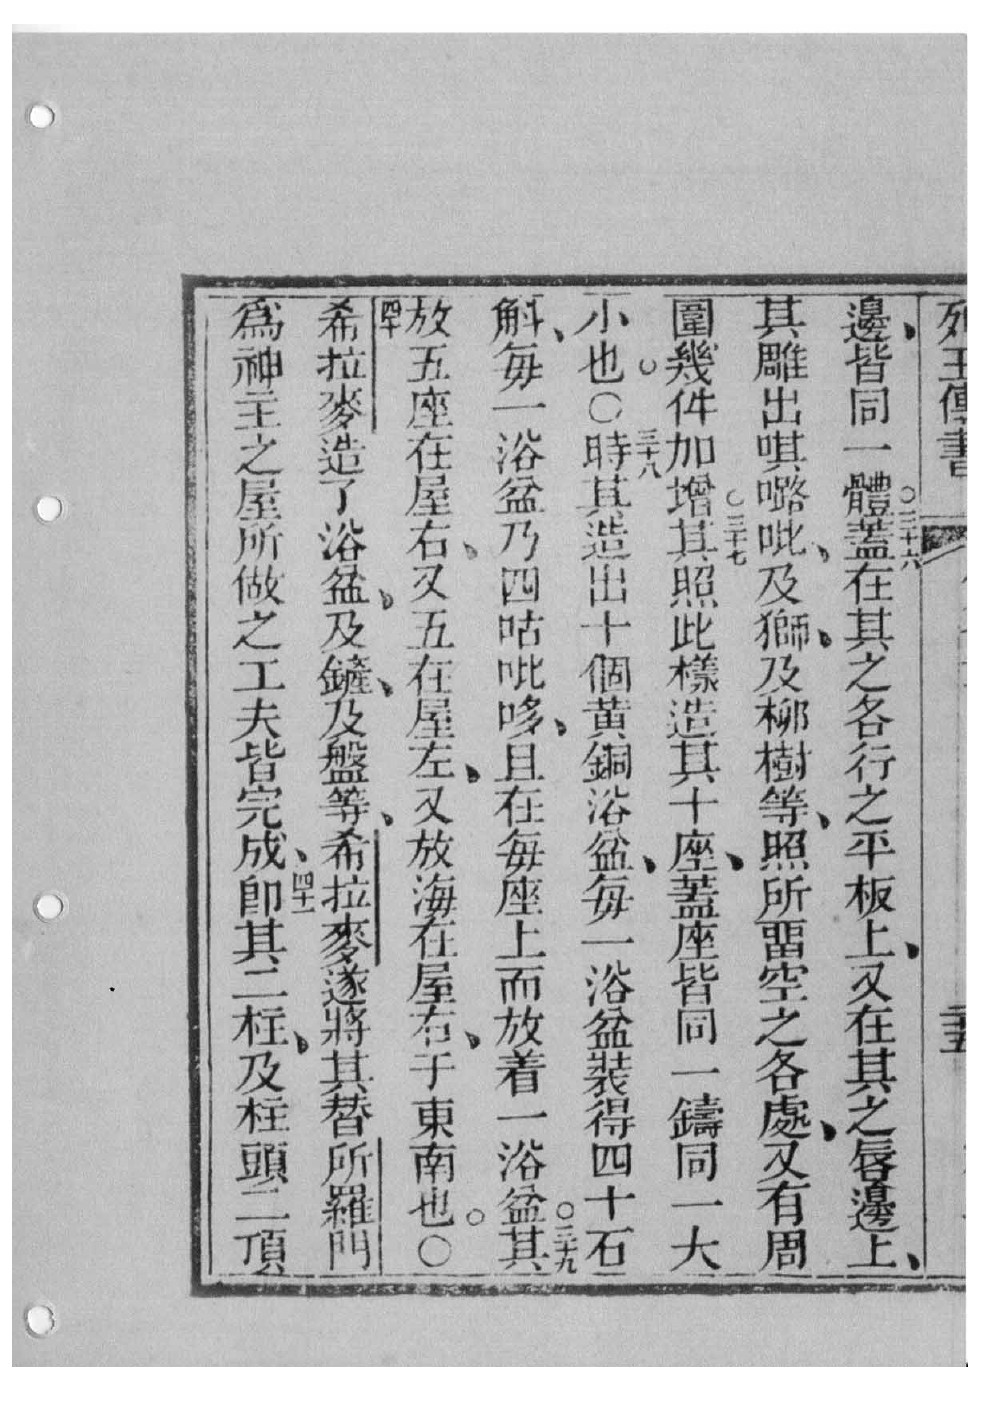 列王傳書 二十五
邊、皆同一體。○三十六蓋在其之各行之平板上、又在其之唇邊上、
其雕出唭㗉吡、及獅、及柳樹等、照所畱空之各處、又有周
圍幾件加增。○三十七其照此樣造其十座、蓋座皆同一鑄同一大
小也。○三十八時其造出十個黃銅浴盆、每一浴盆裝得四十石
斛、每一浴盆乃四咕吡哆、且在每座上而放着一浴盆。○三十九其
放五座在屋右、又五在屋左、又放海在屋右、于東南也。○
四十希拉麥造了浴盆、及鏟、及盤等、希拉麥遂將其替所羅門
爲神主之屋所做之工夫皆完成、四十一卽其二柱、及柱頭二頂